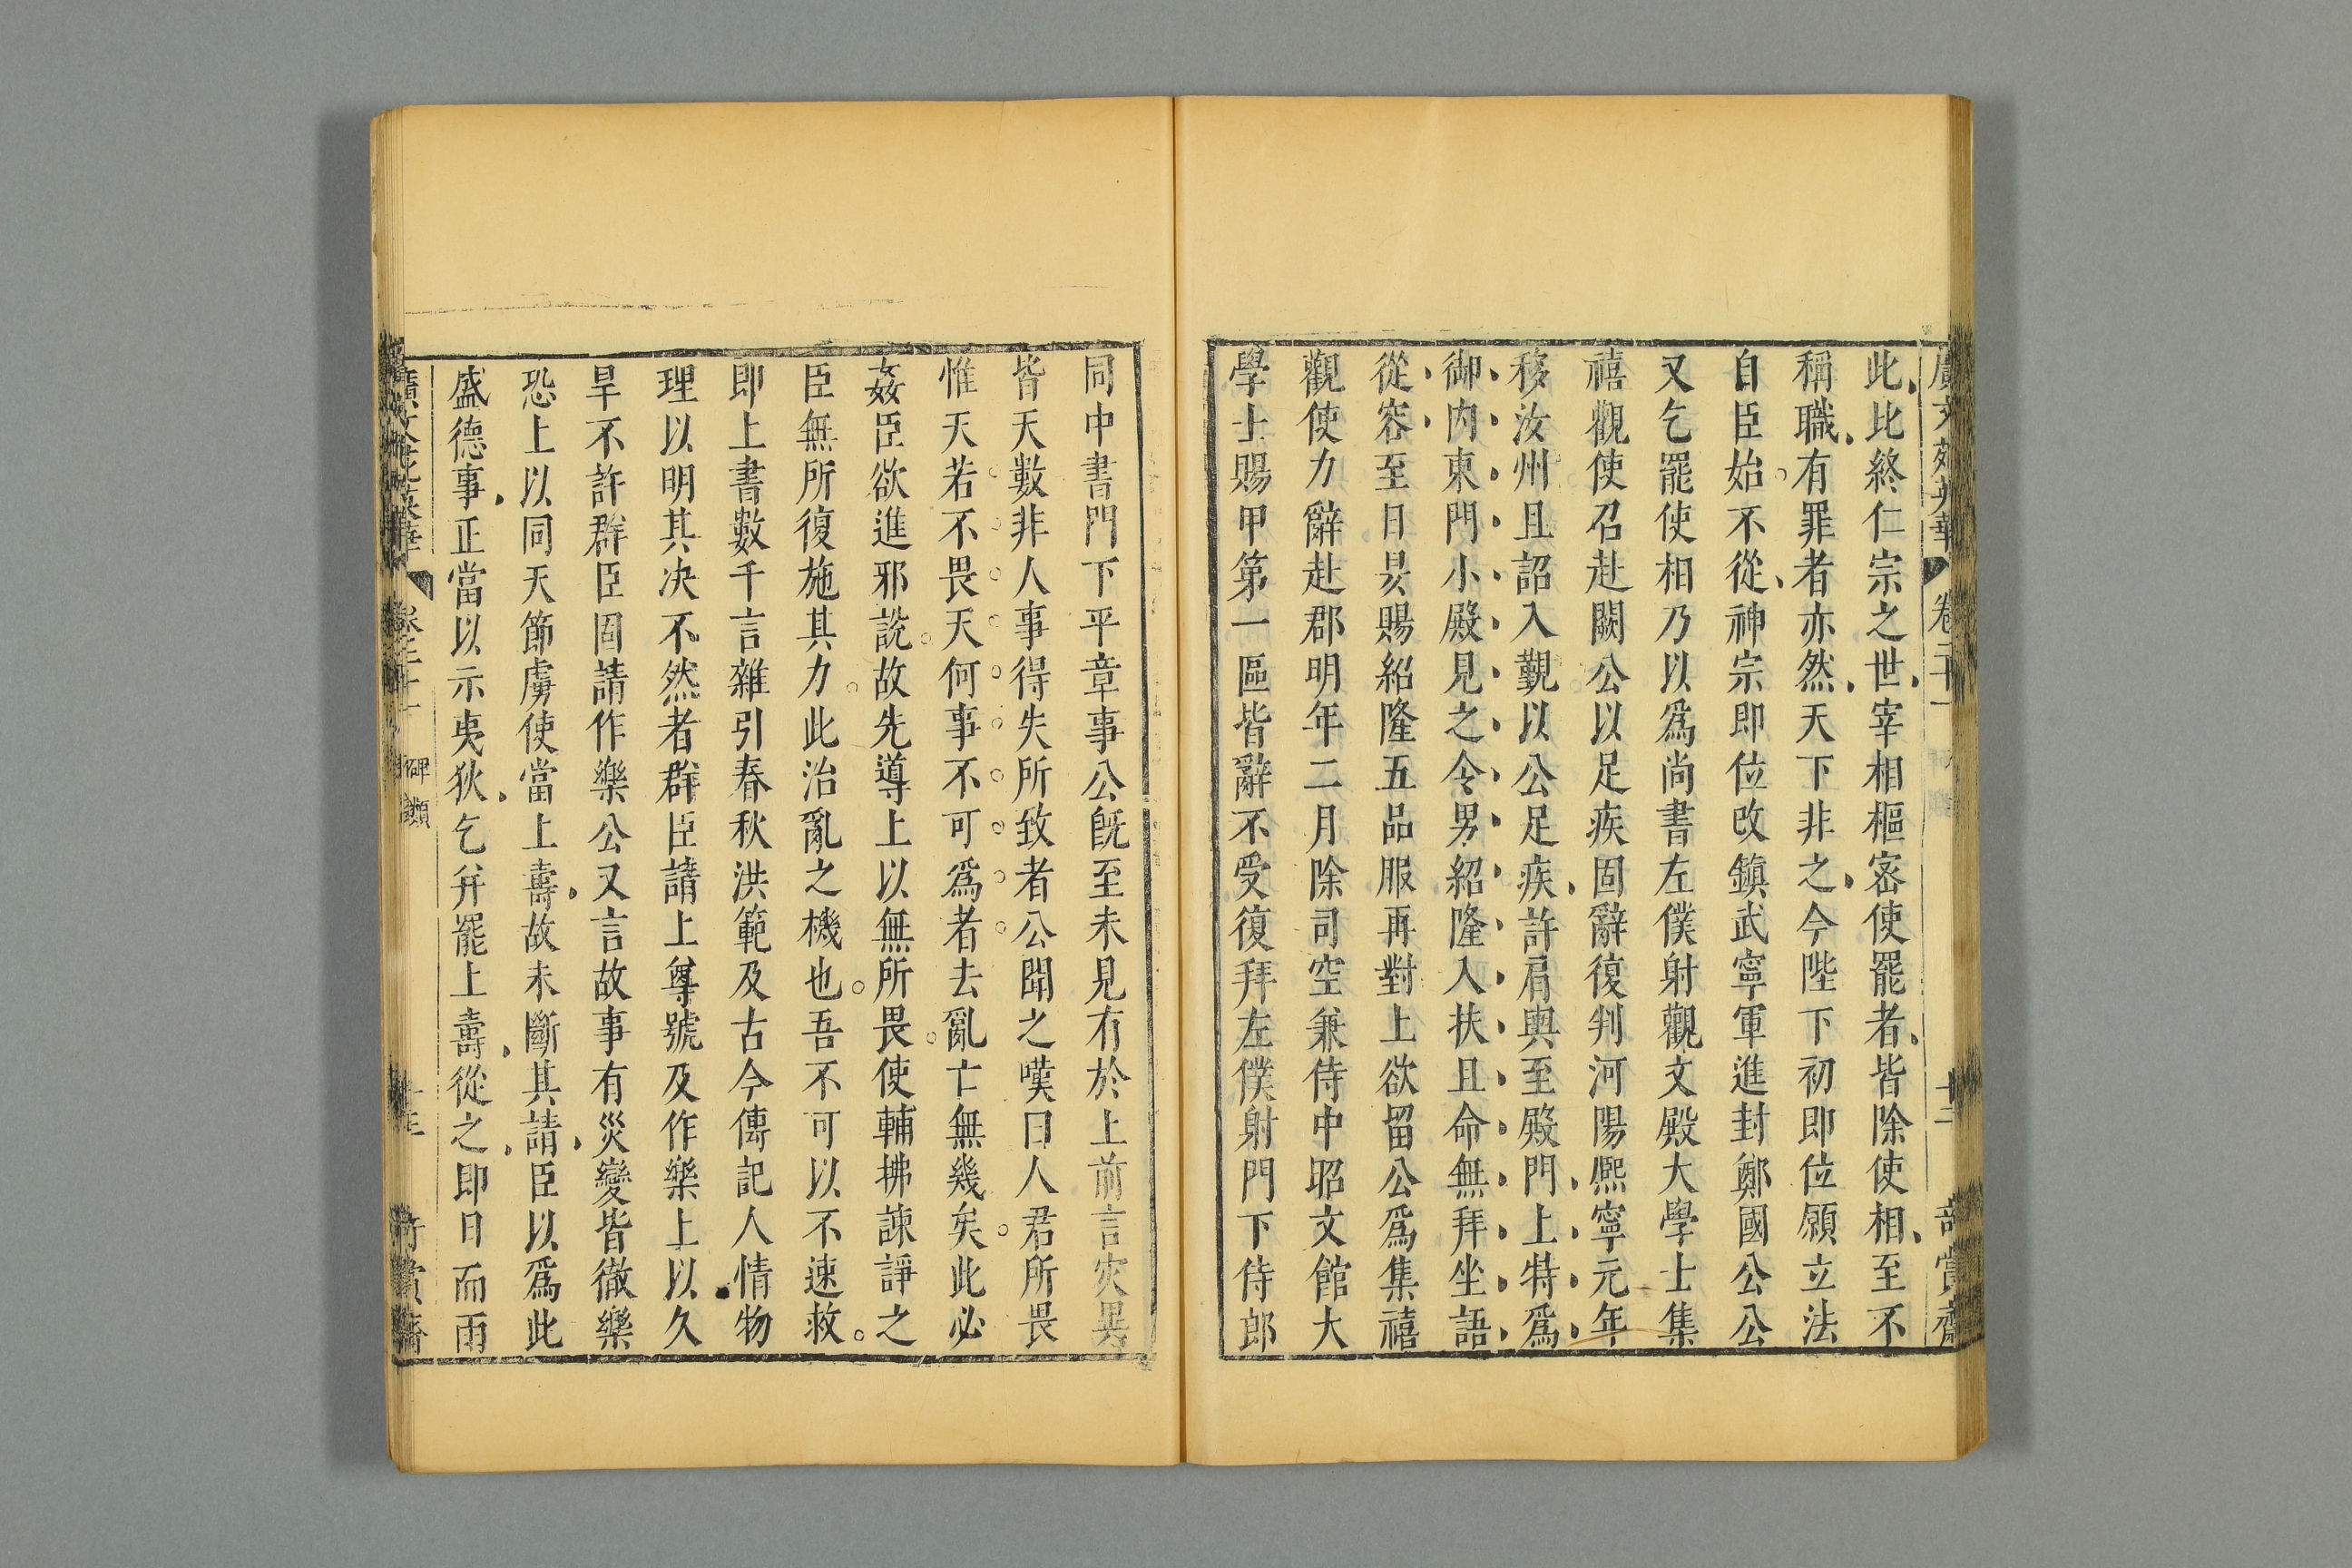 廣文苑英華 卷二十一 十二 奇賞齋
此比終仁宗之世宰相樞密使罷者皆除使相至不
稱職有罪者亦然天下非之今陛下初即位願立法
自臣始不從神宗即位改鎮武寧軍進封鄭國公公
又乞罷使相乃以爲尚書左僕射觀文殿大學士集
禧觀使召赴闕公以足疾固辭復判河陽熈寧元年
移汝州且詔入覲以公足疾許肩輿至殿門上特爲
御内東門小殿見之令男紹隆入扶且命無拜坐語
從容至日昃賜紹隆五品服再對上欲留公爲集禧
觀使力辭赴郡明年二月除司空兼侍中昭文館大
學士賜甲第一區皆辭不受復拜左僕射門下侍郎
同中書門下平章事公旣至未見有於上前言灾異
皆天數非人事得失所致者公聞之嘆曰人君所畏
惟天若不畏天何事不可爲者去亂亡無幾矣此必
姦臣欲進邪說故先導上以無所畏使輔拂諫諍之
臣無所復施其力此治亂之機也吾不可以不速救
即上書數千言雜引春秋洪範及古今傳記人情物
理以明其决不然者群臣請上尊號及作樂上以久
旱不許群臣固請作樂公又言故事有災變皆徹樂
恐上以同天節虜使當上壽故未斷其請臣以爲此
盛德事正當以示夷狄乞幷罷上壽從之即日而雨
廣文苑英華 卷二十一 碑類 十三 奇賞齋